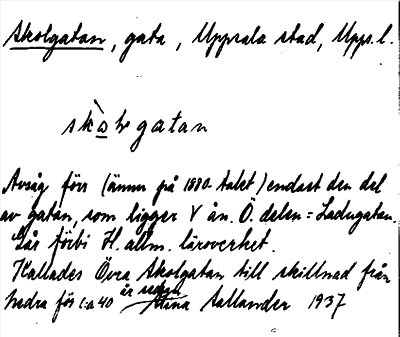 Skolgatan, gata, Uppsala stad, Upps. l.
skòlgatan
Avsåg förr (ännu på 1880-talet) endast den del
av gatan, som ligger V ån. Ö. delen = Ladugatan.
Går förbi H. allm. läroverket.
Kallades Övra Skolgatan till skillnad från
Nedra för c:a 40 år sedan
Stina Sallander 1937